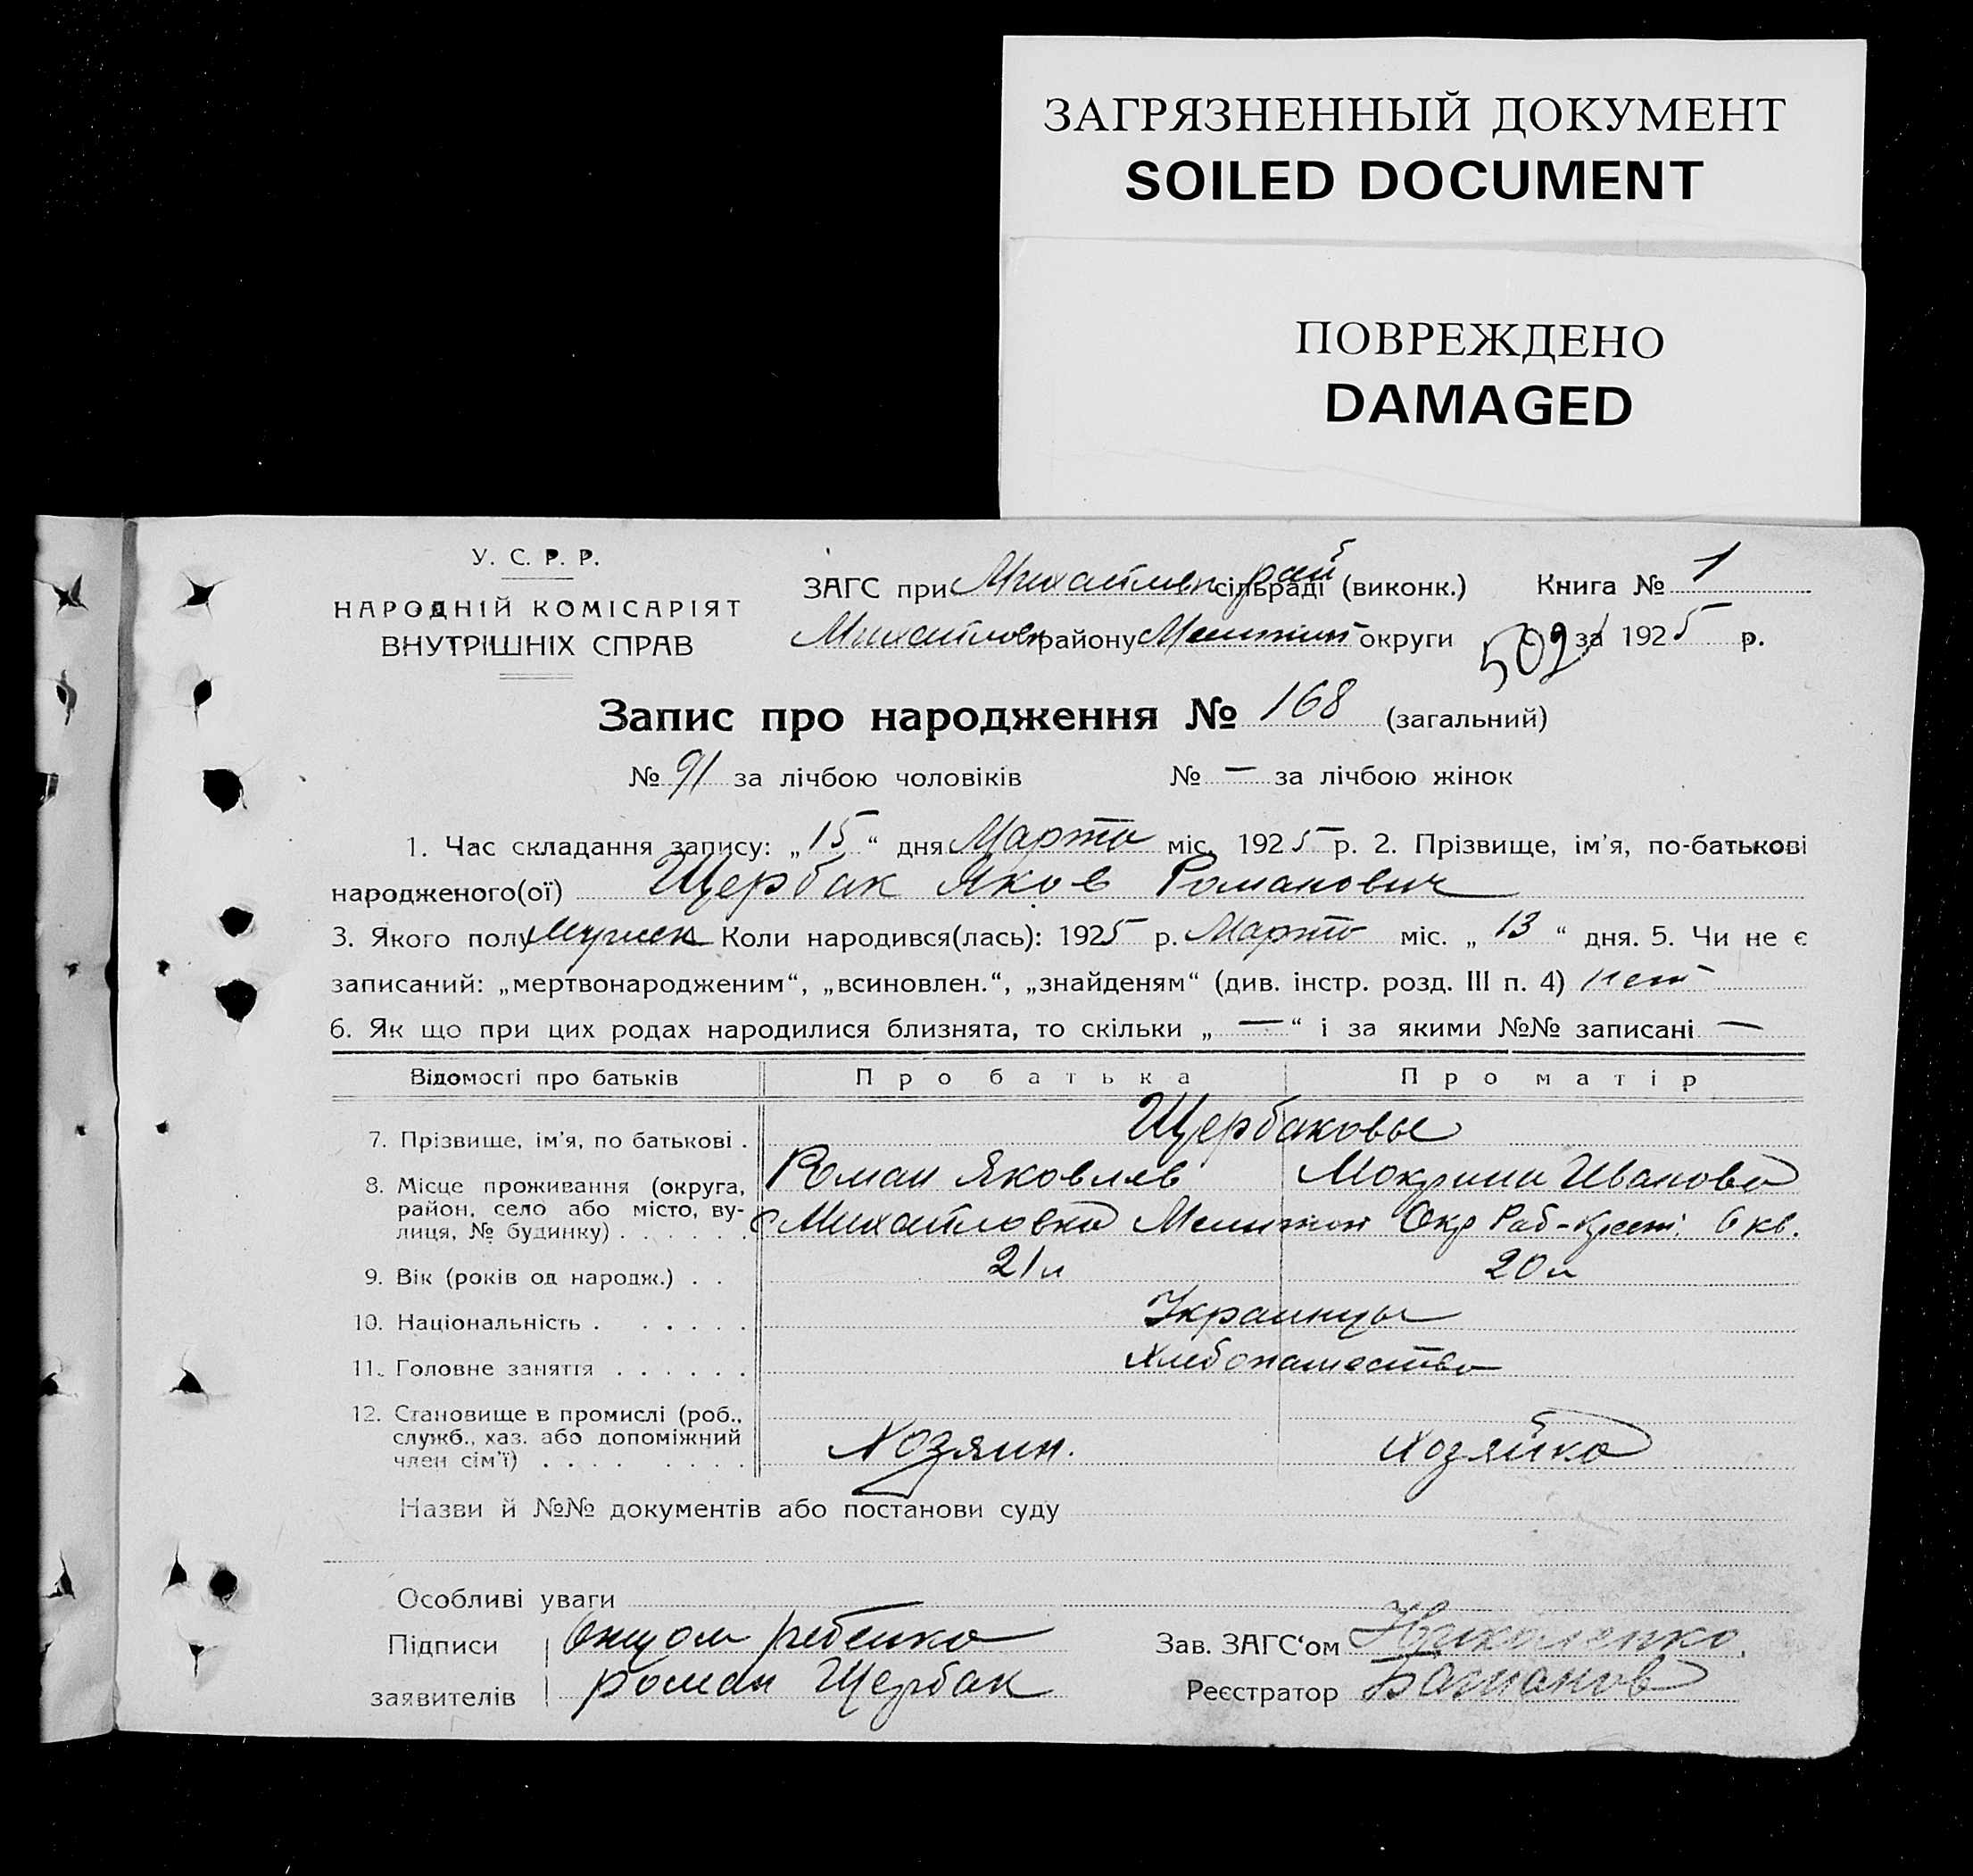 ЗАГРЯЗНЕННЫЙ ДОКУМЕНТ
SOILED DOCUMENT
ПОВРЕЖДЕНО
DAMAGED
У. С. Р. Р.
НАРОДНІЙ КОМІСАРІЯТ
ВНУТРІШНІХ СПРАВ
ЗАГС при Михайлов рай сільраді (виконк.) Книга № 1
Михайлов району Мелитоп округи 509 за 1925 р.
Запис про народження № 168 (загальний)
№ 91 за лічбою чоловіків № — за лічбою жінок
1. Час складання запису: „15“ дня Марта міс. 1925 р. 2. Прізвище, ім'я, по-батькові
народженого(ої) Щербак Яков Романович
3. Якого полу мужск Коли народився(лась): 1925 р. Марта міс. „13“ дня. 5. Чи не є
записаний: „мертвонародженим“, „всиновлен.“, „знайденям“ (див. інстр. розд. III п. 4) нет
6. Як що при цих родах народилися близнята, то скільки „—“ і за якими №№ записані —
Відомості про батьків Про батька Про матір
7. Прізвище, ім'я, по батькові . Щербаковы
Роман Яковлев Мокрина Иванова
8. Місце проживання (округа, район, село або місто, вулиця, № будинку) . . . . . . с Михайловка Мелитоп Окр Раб-Крест. 6 кв.
9. Вік (років од народж.) . . 21 л 20 л
10. Національність . . . . . . Украинцы
11. Головне заняття . . . . . . Хлебопашество
12. Становище в промислі (роб., служб., хаз. або допоміжний член сім'ї) . . . . . . . . Хозяин. Хозяйка
Назви й №№ документів або постанови суду
Особливі уваги
Підписи Отцом ребенка Зав. ЗАГС‘ом Николенко
заявителів Роман Щербак Реєстратор